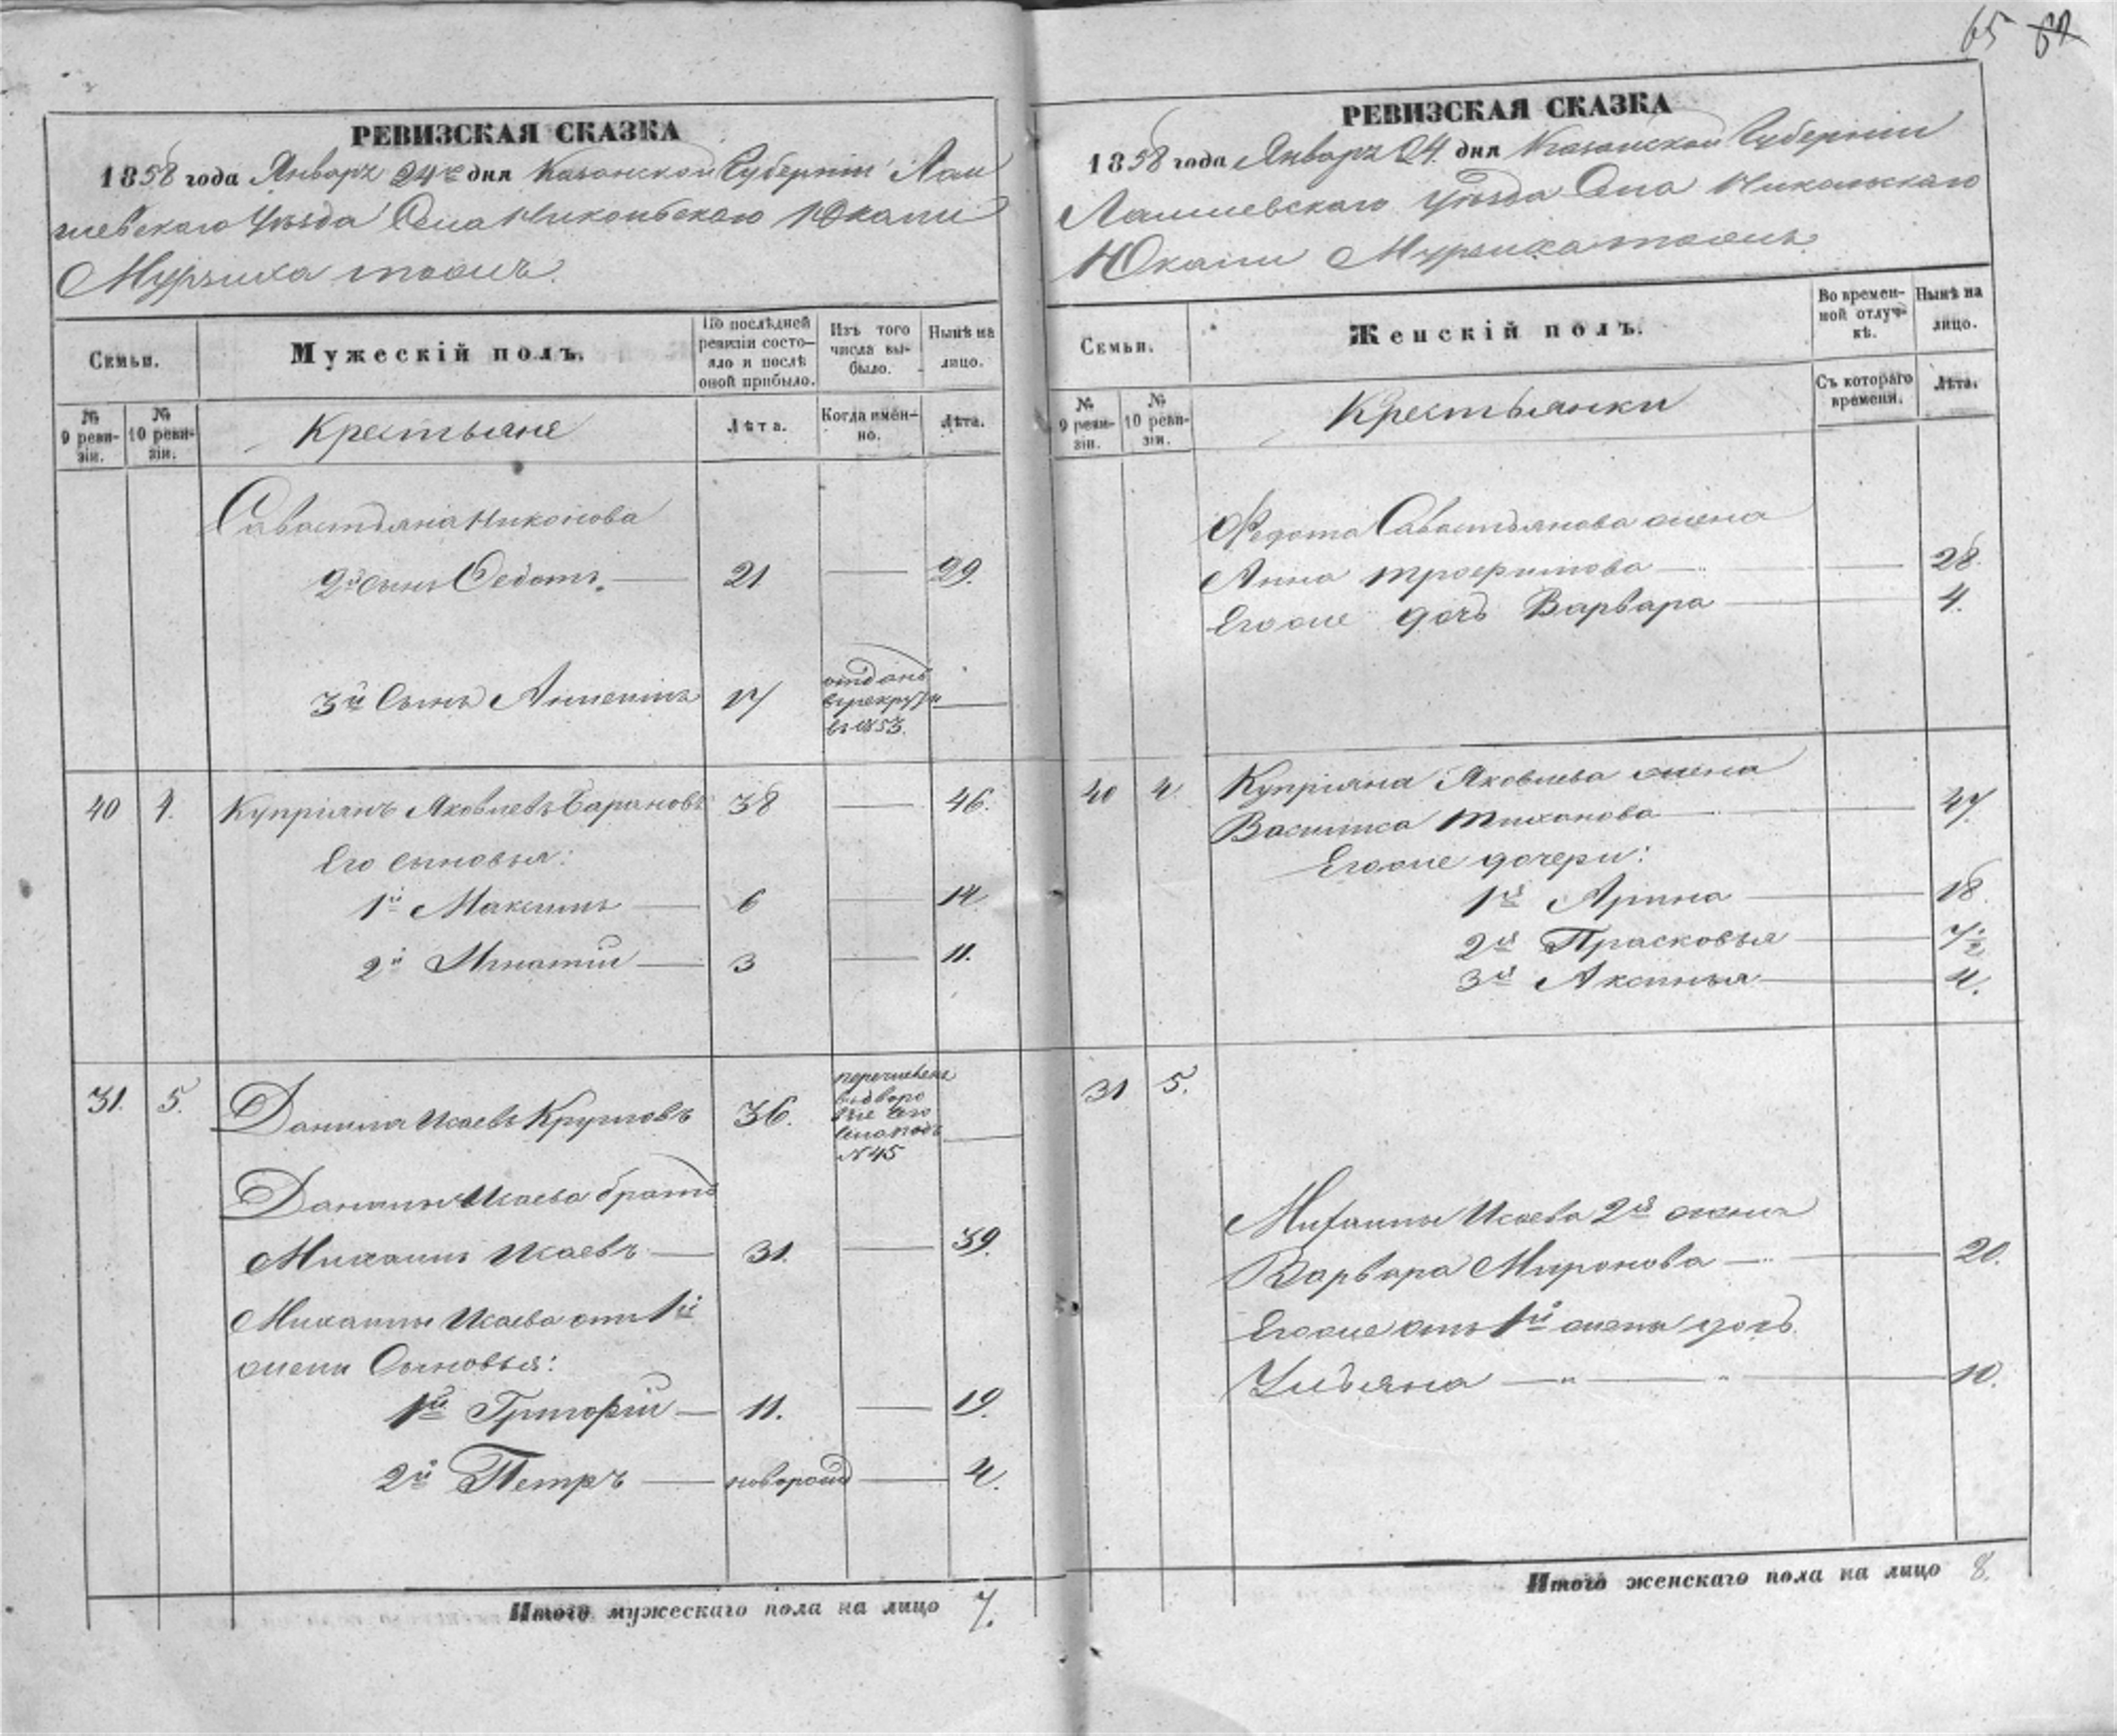 65 62
РЕВИЗСКАЯ СКАЗКА
1858 года Январь 24го дня Казанской Губерніи Лаи
шевскаго Уѣзда Села Никольскаго Юкачи
Мурзиха тожъ.
Семьи.
Мужескій полъ.
По послѣдней ревизіи состояло и послѣ оной прибыло.
Изъ того числа выбыло.
Нынѣ на лицо.
№ 9 ревизіи.
№ 10 ревизіи.
Крестьяне
Лѣта.
Когда именно.
Лѣта.
Савастьяна Никонова
2й сынъ Федотъ. — 21 — 29.
3й Сынъ 17 отданъ
в рекруты —
въ 1853.
40 4. Купріянъ Яковлевъ Барановъ 38 — 46.
Его сыновья:
1й Максимъ — 6 — 14
2й Игнатій — 3 — 11.
31. 5. Данила Исаевъ Кругловъ 36. перечисленъ
№ 45
Данилы Исаева братъ
Михаилъ Исаевъ — 31. — 39.
Михаилы Исаева отъ 1й
жены Сыновья:
1й Григорій — 11. — 19.
2й Петръ —новорожд — 4.
Итого мужескаго пола на лицо 7.
РЕВИЗСКАЯ СКАЗКА
1858 года Январь 24. дня Казанской Губерніи
Лаишевскаго Уѣзда Села Никольскаго
Юкачи Мурзиха тожъ
Семьи.
Женскій полъ.
Во временной отлучкѣ.
Нынѣ на лицо.
№ 9 ревизіи.
№ 10 ревизіи.
Крестьянки
Съ котораго времени.
Лѣта.
Федота Савастьянова жена
Анна Трофимова — 28.
Егоже дочь Варвара — 4.
40 4. Купріяна Яковлева жена
Василиса Тиханова — 47
Егоже дочери:
1я Арина — 18.
2я Прасковья — 7½
3я Аксинья — 4.
31 5.
Михаилы Исаева 2я жена
Варвара Миронова — 20.
Егоже отъ 1й жены дочь
Ульяна — " — " — 10.
Итого женскаго пола на лицо 8.